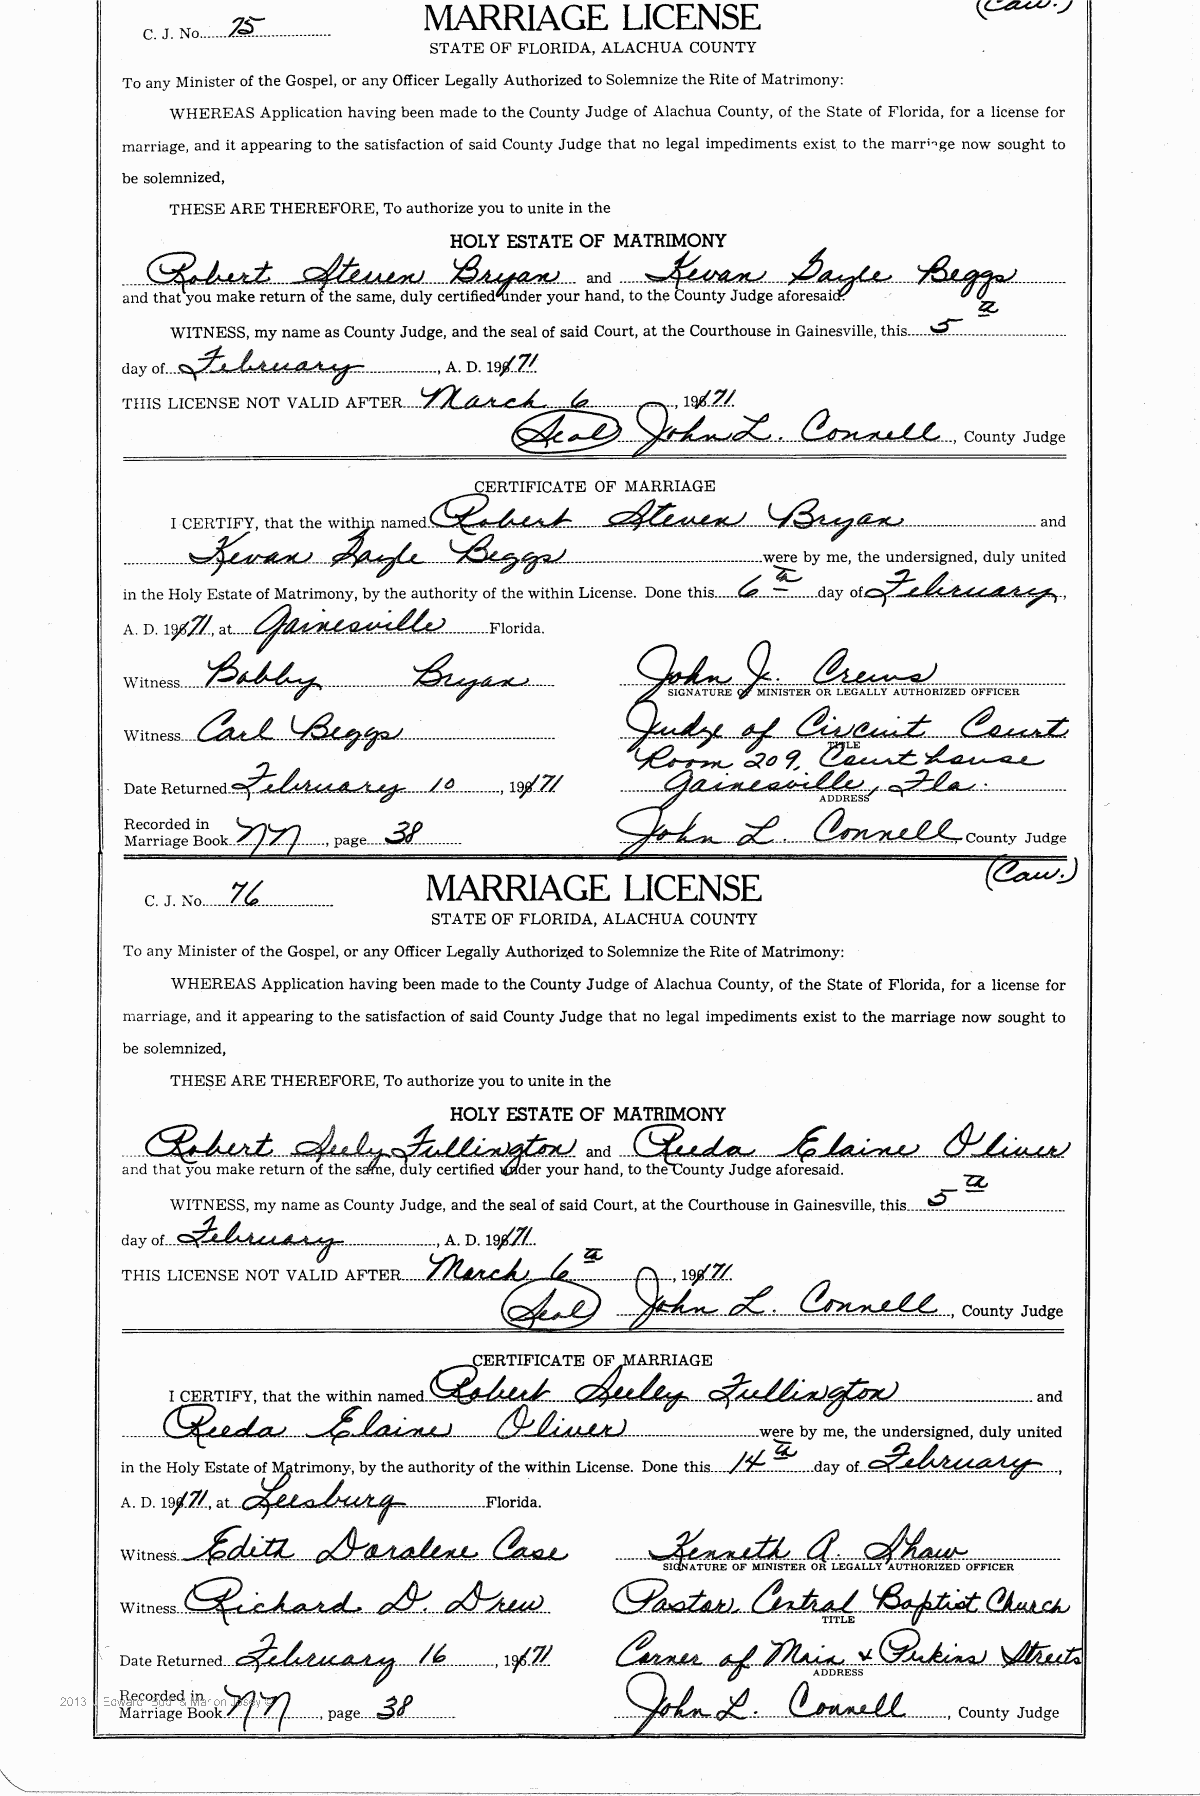 (Cau.)
C. J. No. 75 MARRIAGE LICENSE
STATE OF FLORIDA, ALACHUA COUNTY
To any Minister of the Gospel, or any Officer Legally Authorized to Solemnize the Rite of Matrimony:
WHEREAS Application having been made to the County Judge of Alachua County, of the State of Florida, for a license for
marriage, and it appearing to the satisfaction of said County Judge that no legal impediments exist to the marriage now sought to
be solemnized,
THESE ARE THEREFORE, To authorize you to unite in the
HOLY ESTATE OF MATRIMONY
Robert Steven Bryan and Kevan Gayle Beggs
and that you make return of the same, duly certified under your hand, to the County Judge aforesaid.
WITNESS, my name as County Judge, and the seal of said Court, at the Courthouse in Gainesville, this 5th
day of February, A. D. 1971.
THIS LICENSE NOT VALID AFTER March 6, 1971.
(Seal) John L. Connell, County Judge
CERTIFICATE OF MARRIAGE
I CERTIFY, that the within named Robert Steven Bryan and
Kevan Gayle Beggs were by me, the undersigned, duly united
in the Holy Estate of Matrimony, by the authority of the within License. Done this 6th day of February,
A. D. 1971, at Gainesville Florida.
Witness Bobby Bryan John J. Crews
SIGNATURE OF MINISTER OR LEGALLY AUTHORIZED OFFICER
Witness Carl Beggs Judge of Circuit Court
TITLE
Room 209, Courthouse
Date Returned February 10, 1971 Gainesville, Fla.
ADDRESS
Recorded in
Marriage Book NN, page 38 John L. Connell County Judge
(Cau.)
C. J. No. 76 MARRIAGE LICENSE
STATE OF FLORIDA, ALACHUA COUNTY
To any Minister of the Gospel, or any Officer Legally Authorized to Solemnize the Rite of Matrimony:
WHEREAS Application having been made to the County Judge of Alachua County, of the State of Florida, for a license for
marriage, and it appearing to the satisfaction of said County Judge that no legal impediments exist to the marriage now sought to
be solemnized,
THESE ARE THEREFORE, To authorize you to unite in the
HOLY ESTATE OF MATRIMONY
Robert Seely Fullington and Reeda Elaine Oliver
and that you make return of the same, duly certified under your hand, to the County Judge aforesaid.
WITNESS, my name as County Judge, and the seal of said Court, at the Courthouse in Gainesville, this 5th
day of February, A. D. 1971.
THIS LICENSE NOT VALID AFTER March 6th, 1971.
(Seal) John L. Connell, County Judge
CERTIFICATE OF MARRIAGE
I CERTIFY, that the within named Robert Seeley Fullington and
Reeda Elaine Oliver were by me, the undersigned, duly united
in the Holy Estate of Matrimony, by the authority of the within License. Done this 14th day of February,
A. D. 1971, at Leesburg Florida.
Witness Edith Doralene Case Kenneth A. Shaw
SIGNATURE OF MINISTER OR LEGALLY AUTHORIZED OFFICER
Witness Richard D. Drew Pastor, Central Baptist Church
TITLE
Date Returned February 16, 1971 Corner of Main & Perkins Streets
ADDRESS
2013 Edward "Bud" & Marion
Recorded in
Marriage Book NN, page 38 John L. Connell, County Judge